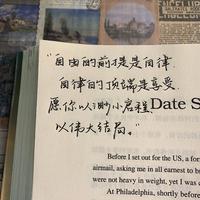 "自由的前提是自律
自律的顶端是享受
愿你以渺小启程
以伟大结局。"
Date S
Before I set out for the US, a for
airmail, asking me in all earnest to b
were not heavy in weight, yet I was c
At Philadelphia, shortly before